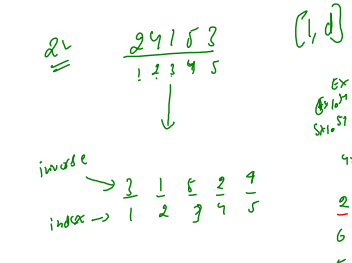 2L
2 4 1 5 3
1 2 3 4 5
[1, d]
EX
inverse
3 1 5 2 4
index → 1 2 3 4 5
2
6